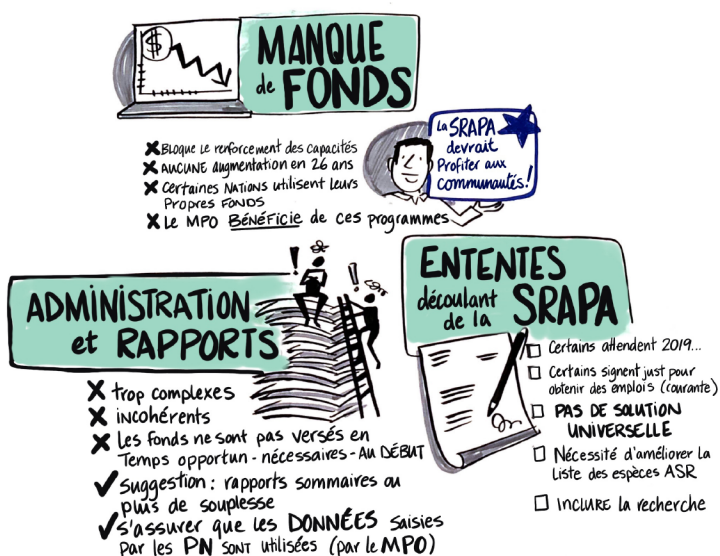 MANQUE
de FONDS
$
La SRAPA
devrait
Profiter aux
communautés!
✗ Bloque le renforcement des capacités
✗ AUCUNE augmentation en 26 ans
✗ Certaines Nations utilisent leurs
Propres FONDS
✗ Le MPO BÉNÉFICIE de ces programmes
ADMINISTRATION
et RAPPORTS
! !
✗ trop complexes
✗ incohérents
✗ Les fonds ne sont pas versés en
Temps opportun - nécessaires - AU DÉBUT
✓ Suggestion : rapports sommaires ou
plus de souplesse
✓ S'assurer que les DONNÉES saisies
Par les PN SONT utilisées (par le MPO)
ENTENTES
découlant
de la SRAPA
☐ Certains attendent 2019...
☐ Certains signent just pour
obtenir des emplois (courante)
☐ PAS DE SOLUTION
UNIVERSELLE
☐ Nécessité d'améliorer la
Liste des espèces ASR
☐ INCLURE la recherche